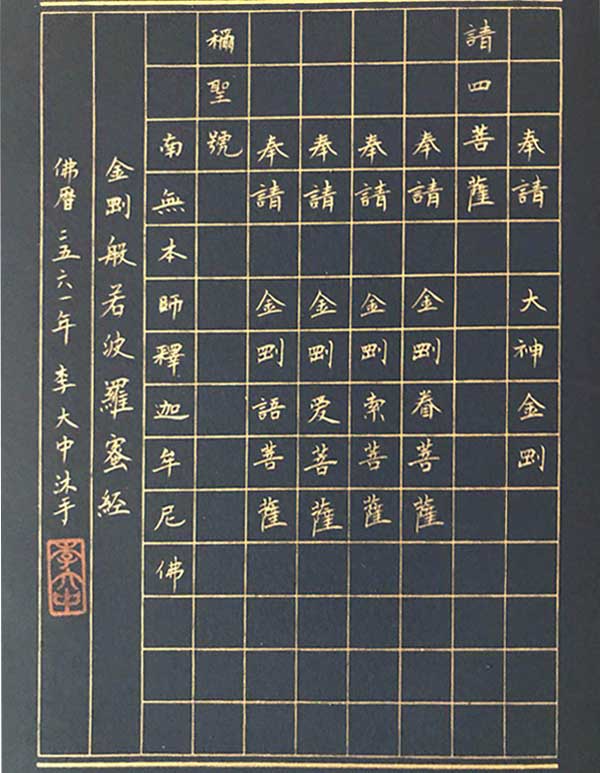 奉請 大神金剛
請四菩薩
奉請 金剛眷菩薩
奉請 金剛索菩薩
奉請 金剛爱菩薩
奉請 金剛語菩薩
稱聖號
南無本師釋迦牟尼佛
金剛般若波羅蜜經
佛曆二五六一年 李大中沐手
李大中